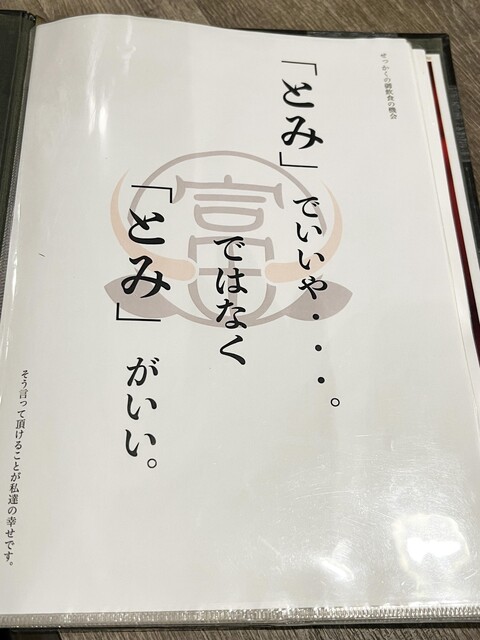 せっかくの御飲食の機会
「とみ」でいいや・・・。
ではなく
「とみ」がいい。
そう言って頂けることが私達の幸せです。
富